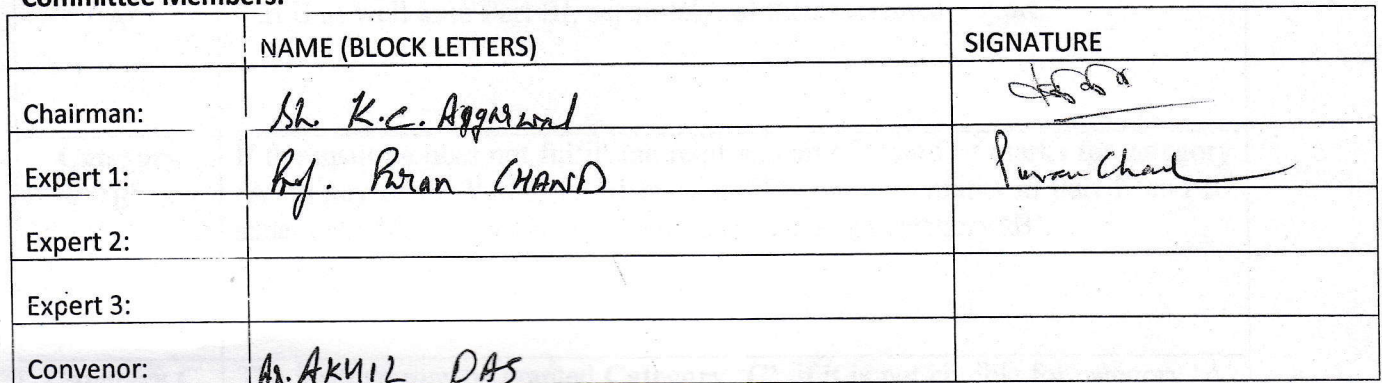 Committee Members:
NAME (BLOCK LETTERS) SIGNATURE
Chairman: Sh. K.C. Aggarwal
Expert 1: Prof. Puran CHAND Puran Chand
Expert 2:
Expert 3:
Convenor: Ar. AKHIL DAS